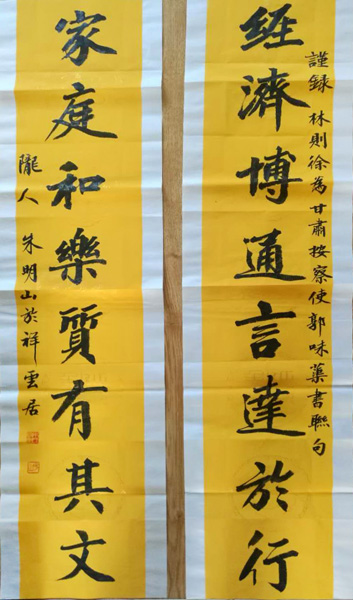 經濟博通言達於行
謹録 林則徐為甘肅按察使郭味蕖書聯句
家庭和樂質有其文
隴人 朱明山於祥雲居